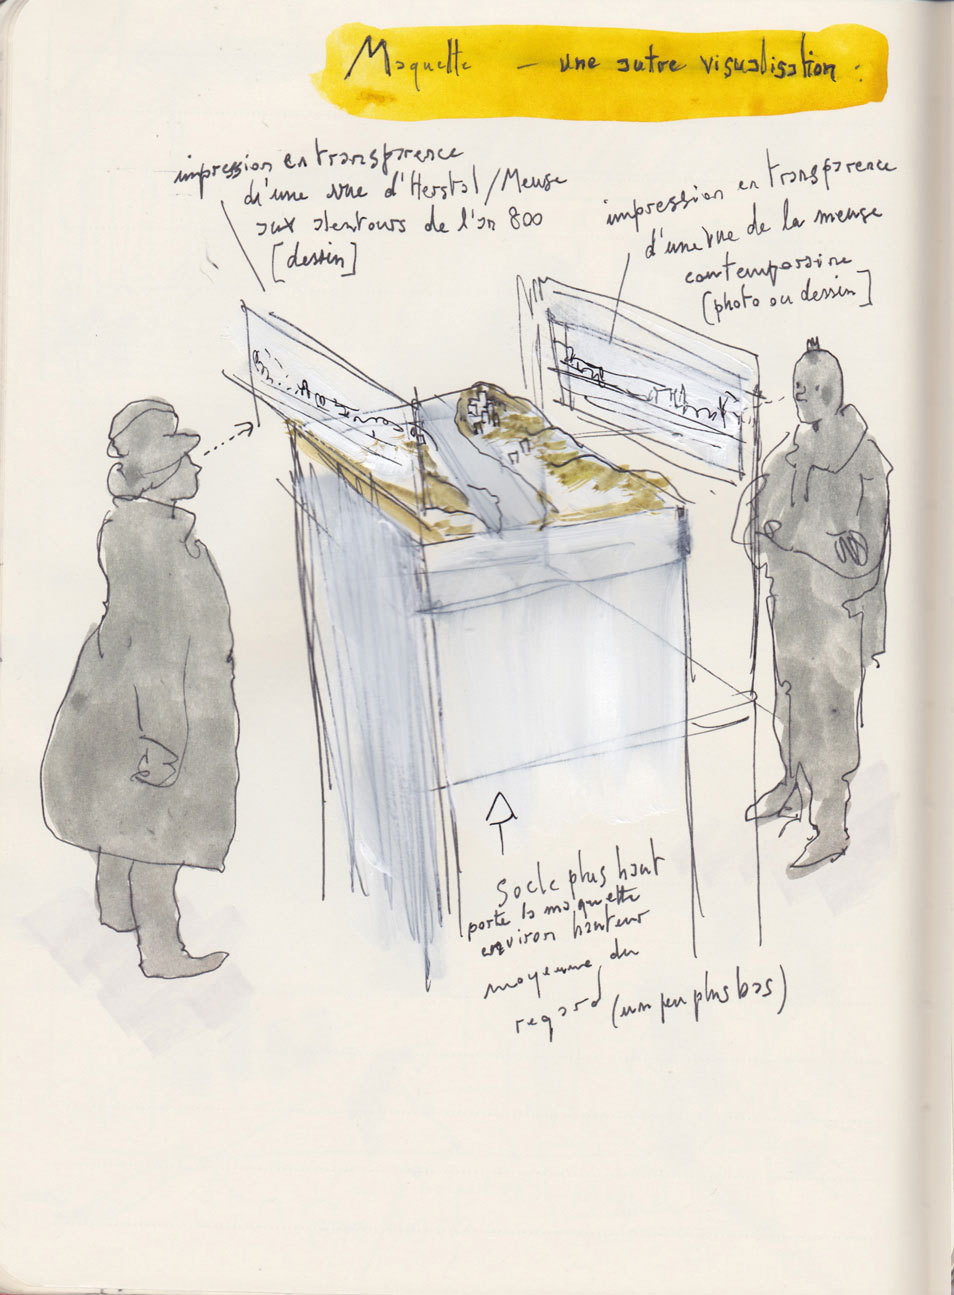 Maquette - une autre visualisation :
impression en transparence
d'une vue d'Herstal/Meuse
aux alentours de l'an 800
[dessin]
impression en transparence
d'une vue de la meuse
contemporaine
[photo ou dessin]
Socle plus haut
porte la maquette
environ hauteur
moyenne du
regard (un peu plus bas)